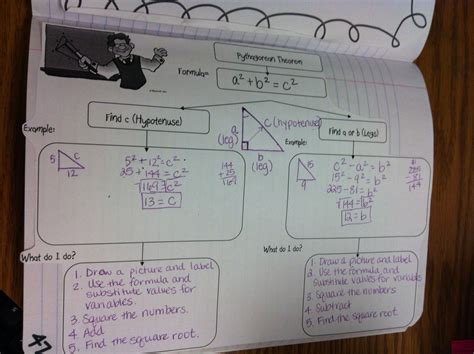 Pythagorean Theorem
Formula=
a² + b² = c²
Find c (Hypotenuse)
a (leg)
c (hypotenuse)
b (leg)
Find a or b (Legs)
Example:
5
c
12
5² + 12² = c²
25 + 144 = c²
√169 = √c²
13 = c
144
+25
169
Example:
15
9
c² - a² = b²
15² - 9² = b²
225 - 81 = b²
√144 = √b²
12 = b
225
- 81
144
What do I do?
1. Draw a picture and label
2. Use the formula and
substitute values for
variables.
3. Square the numbers.
4. Add
5. Find the square root.
What do I do?
1. Draw a picture and label
2. Use the formula and
substitute values for
variables
3. Square the numbers
4. Subtract
5. Find the square root.